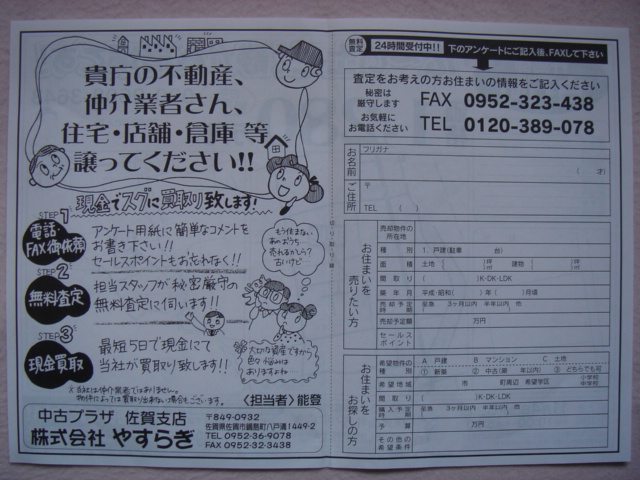 貴方の不動産、
仲介業者さん、
住宅・店舗・倉庫 等
譲ってください!!
現金でスグに買取り致します!
STEP 1
電話・FAX御依頼
アンケート用紙に簡単なコメントを
お書き下さい!!
セールスポイントもお忘れなく!!
もう住まない
あのおうち
売れるかしら?
古いけど…
STEP 2
無料査定
担当スタッフが秘密厳守の
無料査定に伺います!!
STEP 3
現金買取
最短5日で現金にて
当社が買取り致します!!
大切な資産ですから
色々悩みは
ありますよね
※当社は仲介業者ではありません。
物件によっては買取り出来ない場合もございます。
〈担当者〉能登
中古プラザ 佐賀支店
株式会社 やすらぎ
〒849-0932
佐賀県佐賀市鍋島町八戸溝1449-2
TEL 0952-36-9078
FAX 0952-32-3438
無料査定
24時間受付中!!
下のアンケートにご記入後、FAXして下さい
査定をお考えの方お住まいの情報をご記入ください
秘密は
厳守します
FAX 0952-323-438
お気軽に
お電話ください
TEL 0120-389-078
お名前
フリガナ
( 才)
ご住所
〒
TEL ( )
お住まいを
売りたい方
売却物件の
所在地
種別 1. 戸建(駐車 台)
面積 土地 ( ) 建物 ( )
間取り ( )K・DK・LDK
築年月 平成・昭和( )年( )月頃
売却予定
時期
至急 3ヶ月以内 半年以内 他
売却予定額 万円
セールス
ポイント
お住まいを
お探しの方
希望物件の
種別
A 戸建 B マンション C 土地
① 新築 ② 中古(築 年以内) ③ どちらでも可
希望地域 市 町周辺 希望学区 小学校
中学校
間取り ( )K・DK・LDK
購入予定
時期
至急 3ヶ月以内 半年以内 他
予算 万円
その他の
希望条件